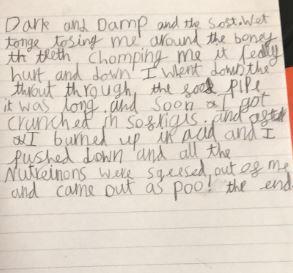 Dark and Damp and the sost.Wet
tonge tosing me around the boney
th teeth chomping me it really
hurt and down I went down the
throut through, the pipe
it was long. and soon I got
crunched in and
I burned up in acid and I
pushed down and all the
Nutreinons were sqeesed out of me
and came out as poo! the end.